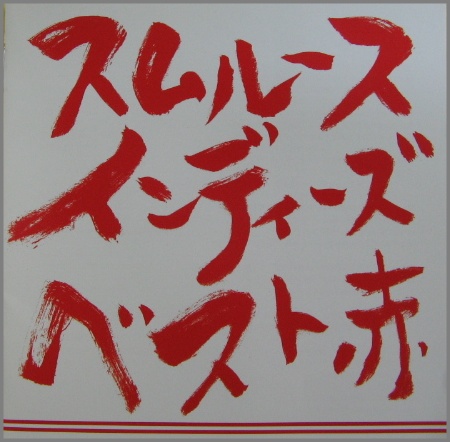 スムルース
インディーズ
ベスト赤